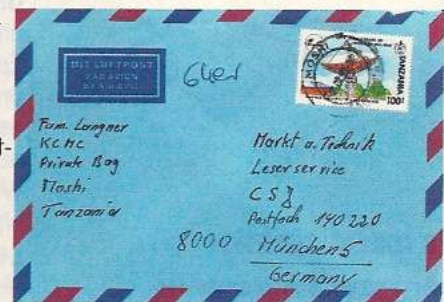 MIT LUFTPOST
PAR AVION
64er
MOSHI
TANZANIA
100/-
Fam. Langner
KCMC
Private Bag
Moshi
Tanzania
Markt a. Technik
Leserservice
CSJ
Postfach 140 220
8000 München 5
Germany
t-